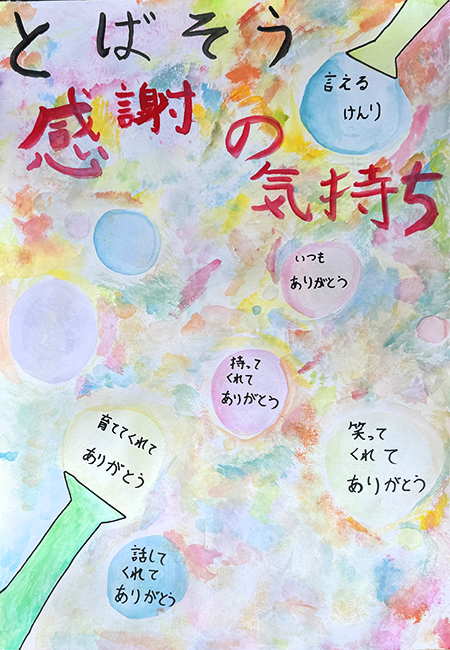 とばそう
感謝の
気持ち
言える
けんり
いつも
ありがとう
持って
くれて
ありがとう
育ててくれて
ありがとう
笑って
くれて
ありがとう
話して
くれて
ありがとう